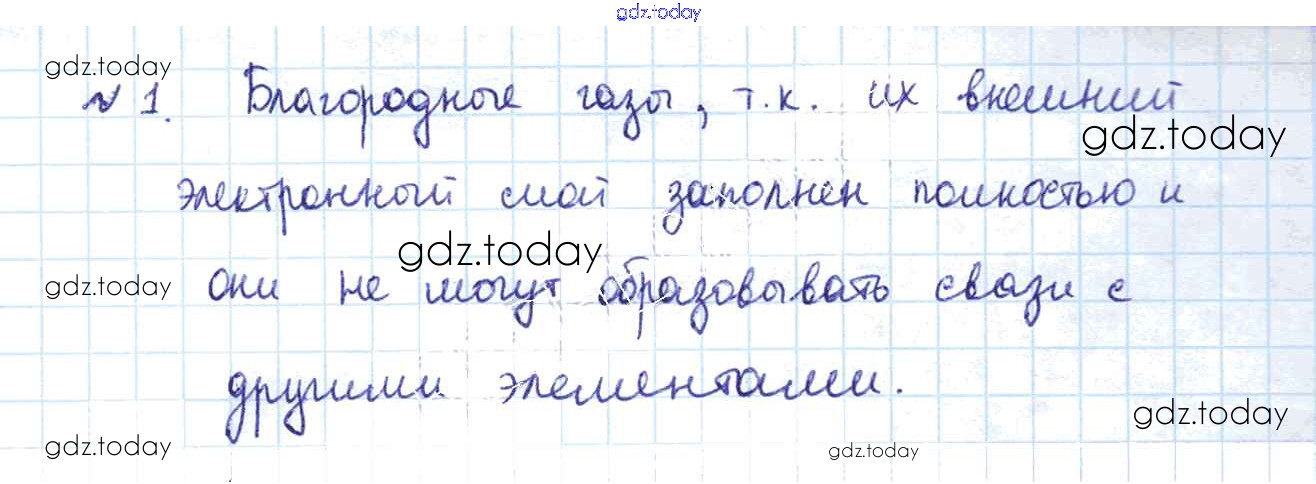 gdz.today
gdz.today
№ 1. Благородные газы, т.к. их внешний
gdz.today
электронный слой заполнен полностью и
gdz.today
gdz.today
они не могут образовывать связи с
другими элементами.
gdz.today
gdz.today
gdz.today